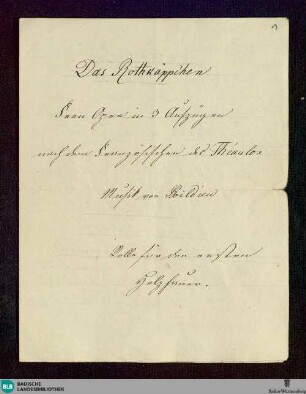 1
Das Rothkäppchen
Feen Oper in 3 Aufzügen
nach dem Französischen des Théaulon
Musik von Boildieu
Rolle für den ersten
Holzhauer.
BLB BADISCHE
LANDESBIBLIOTHEK
Baden-Württemberg